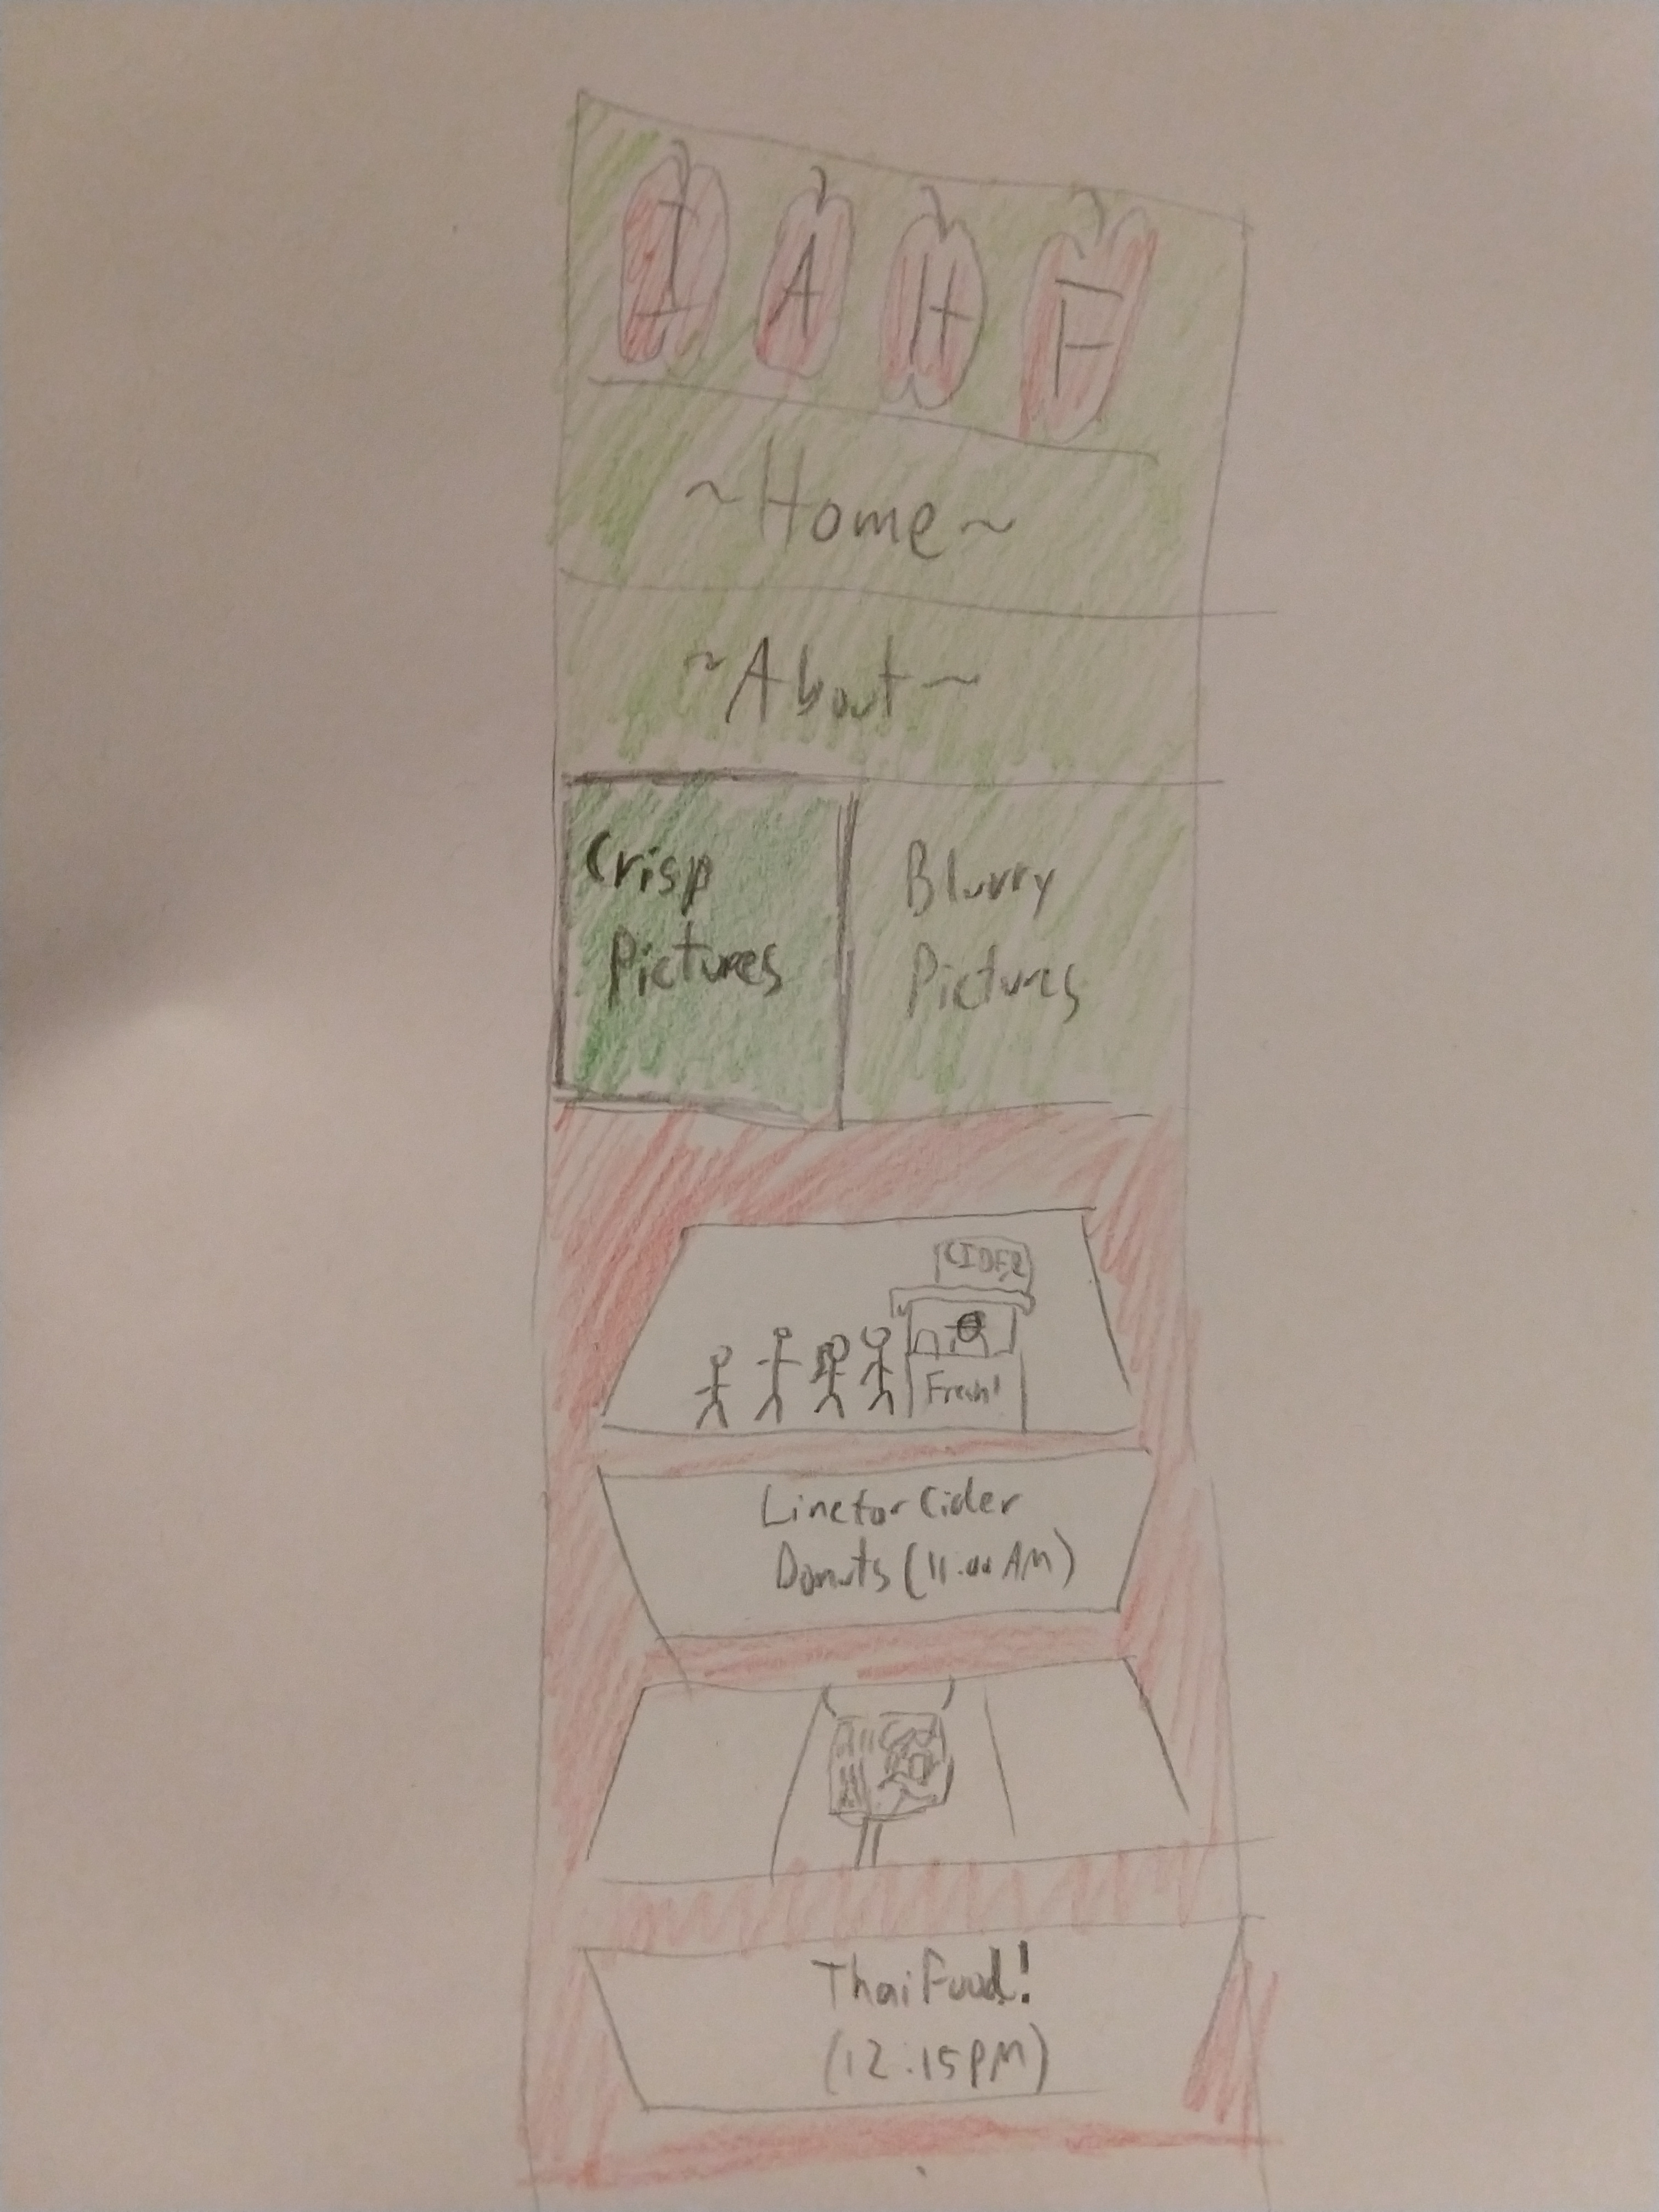 I A H F
~Home~
~About~
Crisp
Pictures
Blurry
Pictures
CIDER
Fresh!
Line for Cider
Donuts (11:00 AM)
Thai Food!
(12:15PM)